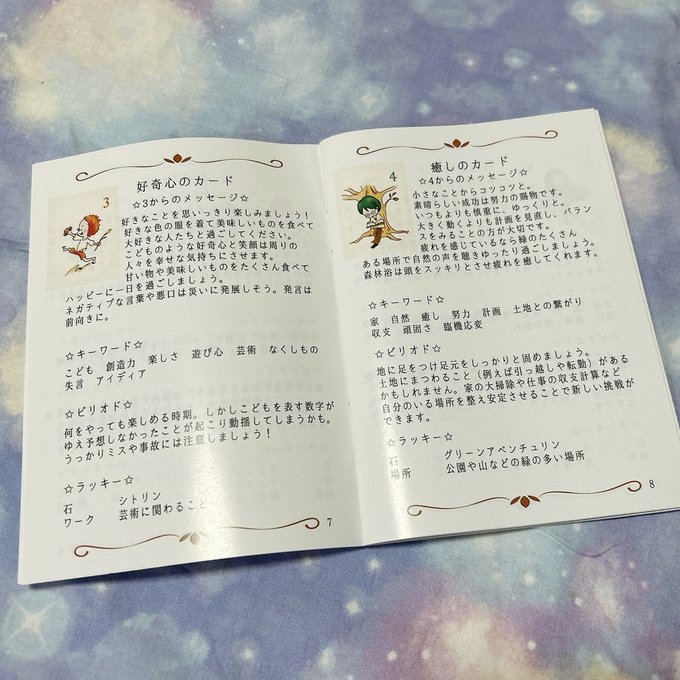 好奇心のカード
3
☆3からのメッセージ☆
好きなことを思いっきり楽しみましょう！
好きな色の服を着て美味しいものを食べて
大好きな人たちと過ごしてください。
こどものような好奇心と笑顔は周りの
人々を幸せな気持ちにさせます。
甘い物や美味しいものをたくさん食べて
ハッピーに一日を過ごしましょう。
ネガティブな言葉や悪口は災いに発展しそう。発言は
前向きに。
☆キーワード☆
こども 創造力 楽しさ 遊び心 芸術 なくしもの
失言 アイディア
☆ピリオド☆
何をやっても楽しめる時期。しかしこどもを表す数字が
ゆえ予想しなかったことが起こり動揺してしまうかも。
うっかりミスや事故には注意しましょう！
☆ラッキー☆
石 シトリン
ワーク 芸術に関わること
7
癒しのカード
4
☆4からのメッセージ☆
小さなことからコツコツと。
素晴らしい成功は努力の賜物です。
いつもよりも慎重に、ゆっくりと。
大きく動くよりも計画を見直し、バラン
スをみることの方が大切です。
疲れを感じているなら緑のたくさん
ある場所で自然の声を聴きゆったり過ごしましょう。
森林浴は頭をスッキリとさせ疲れを癒してくれます。
☆キーワード☆
家 自然 癒し 努力 計画 土地との繋がり
収支 頑固さ 臨機応変
☆ピリオド☆
地に足をつけ足元をしっかりと固めましょう。
土地にまつわること（例えば引っ越しや転勤）がある
かもしれません。家の大掃除や仕事の収支計算など
自分のいる場所を整え安定させることで新しい挑戦が
できます。
☆ラッキー☆
石 グリーンアベンチュリン
場所 公園や山などの緑の多い場所
8